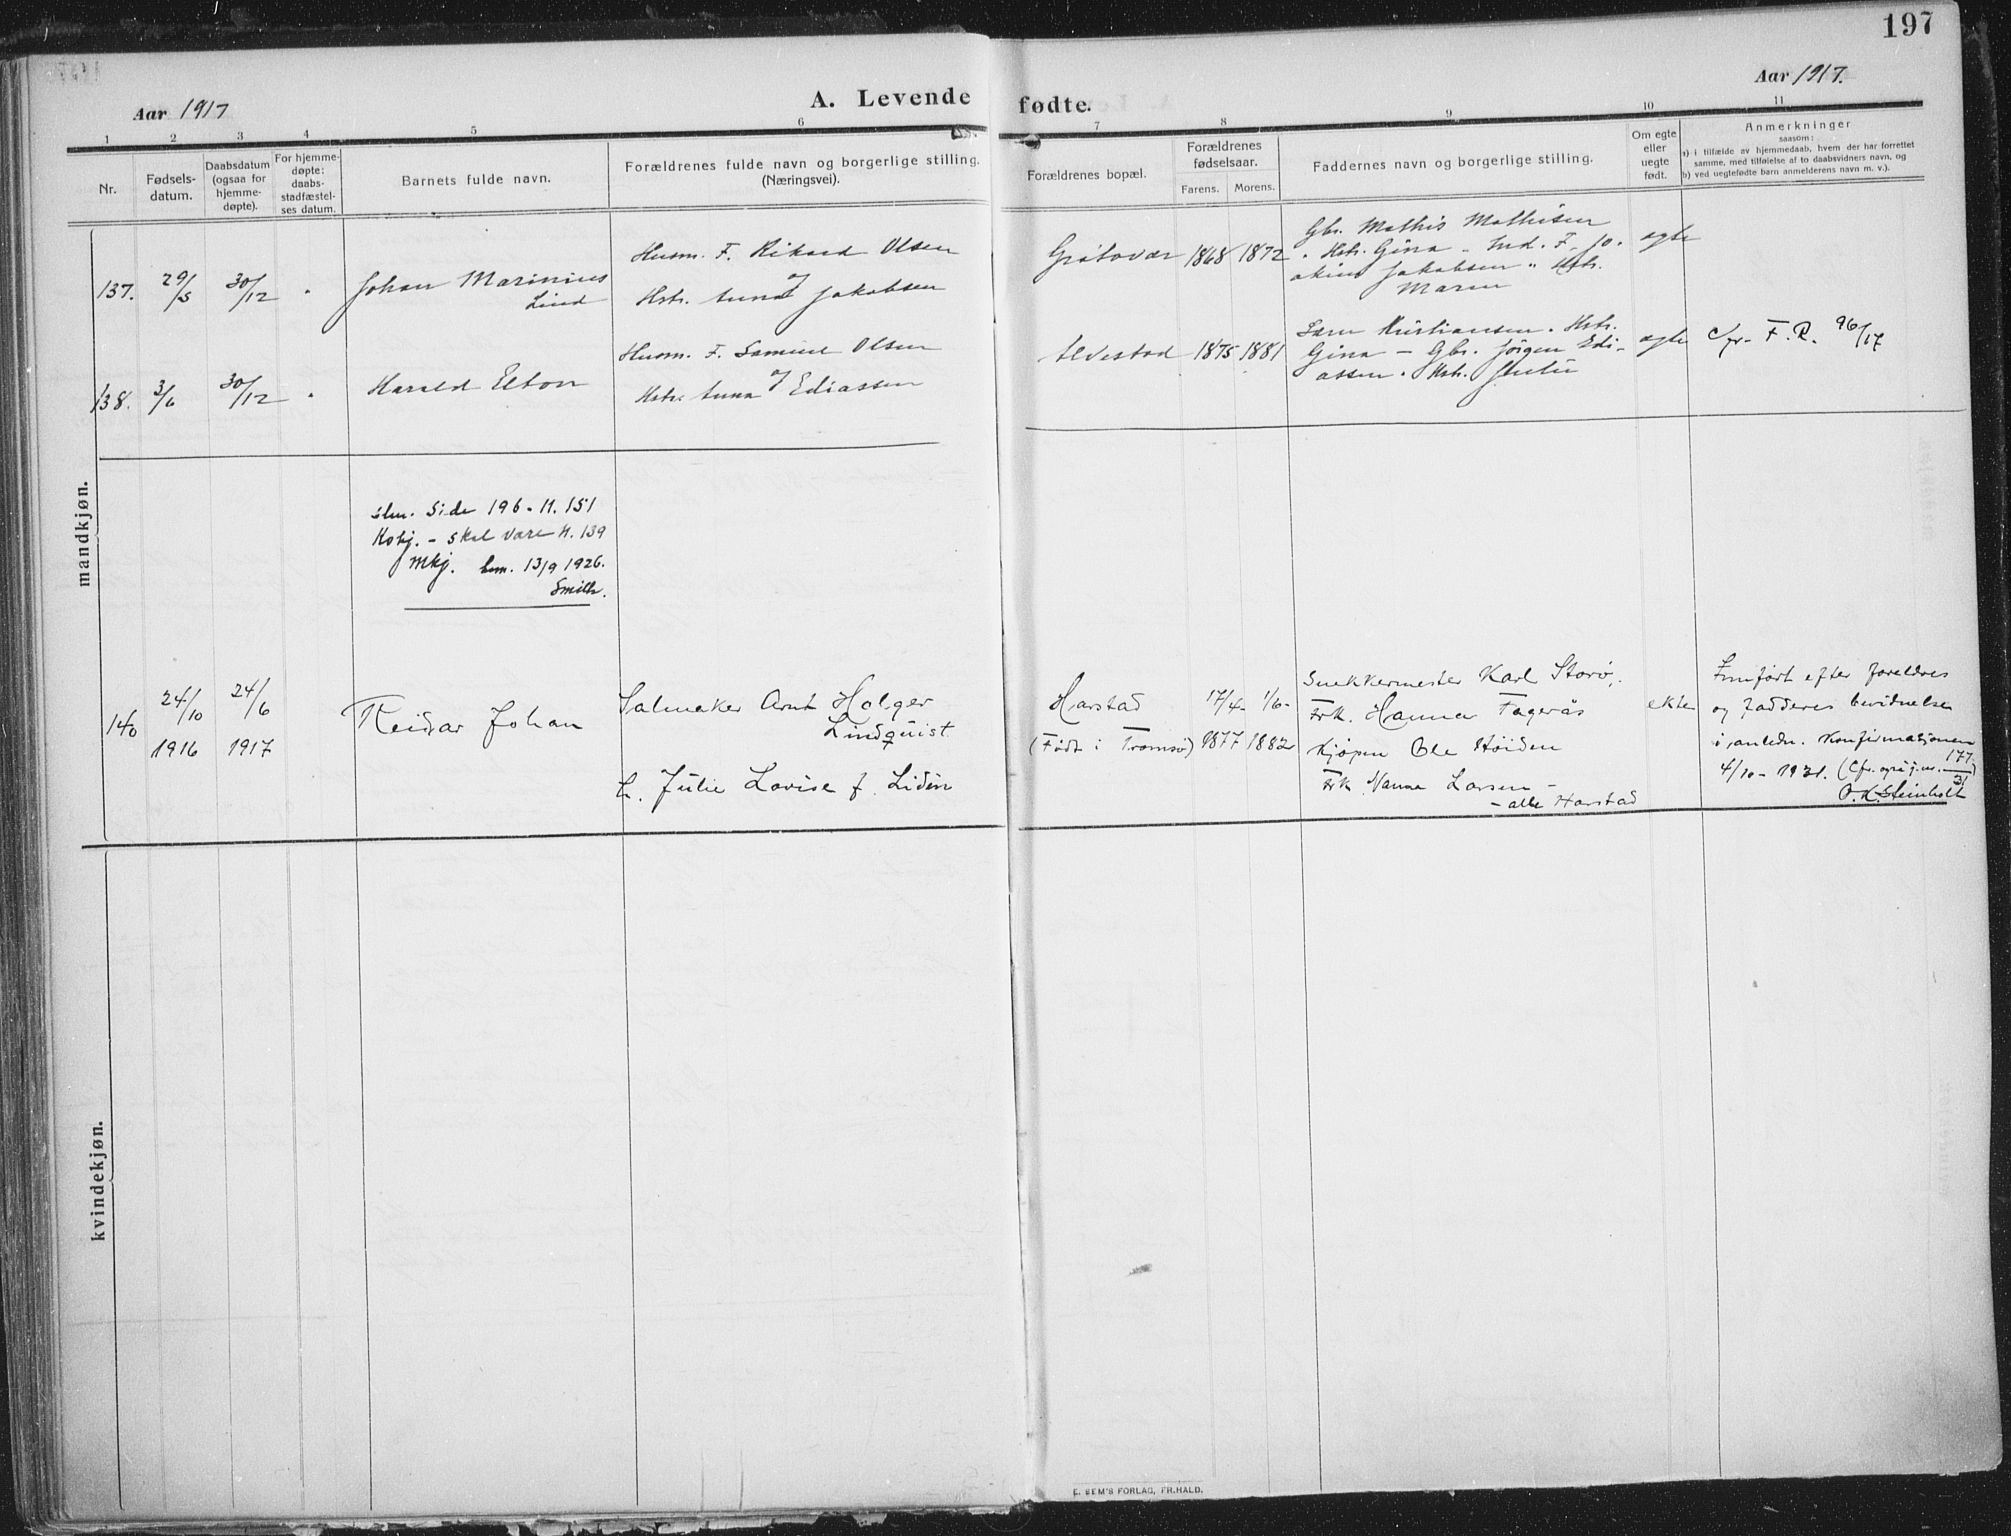 197
Aar 1917
A. Levende fødte.
Aar 1917.
1 2 3 4 5 6 7 8 9 10 11
Nr.
Fødsels-
datum.
Daabsdatum
(ogsaa for
hjemme-
døpte).
For hjemme-
døpte:
daabs-
stadfæstel-
ses datum.
Barnets fulde navn.
Forældrenes fulde navn og borgerlige stilling.
(Næringsvei).
Forældrenes bopæl.
Forældrenes
fødselsaar.
Farens. Morens.
Faddernes navn og borgerlige stilling.
Om egte
eller
uegte
født.
Anmerkninger
saasom:
a) i tilfælde av hjemmedaab, hvem der har forrettet
samme, med tilføielse af to daabsvidners navn, og
b) ved uegtefødte barn anmelderens navn m. v.).
mandkjøn.
137. 29/5 30/12 "
Johan Marinius
Lind
Husm. F. Rikard Olsen
Hstr. Anna f Jakobsen
Grøtavær 1868 1872
Gbr. Mathis Mathisen
" Hstr. Gina - Ind. F. Jo-
akim Jakobsen " Hstr.
Maren
egte
138. 3/6 30/12 "
Harald Elton
Husm. F. Samuel Olsen
Hstr. Anna f Ediassen
Alvestad 1875 1881
Sørn Kristiansen. Hstr.
Gina - Gbr. Jørgen Edi-
assen.
egte
Cfr. F. R. 96/17
Side 196 - N. 151
Kvkj. - skal være N. 139
Mkj. bem. 13/9 1926.
Smith.
140 24/10 1916 24/6 1917
Reidar Johan
Salmaker Arnt Holger
Lindquist
h. Julie Lovise f. Lidén
Harstad
(Født i Tromsø)
17/4- 1877 1/6- 1882
Snekkermester Karl Storø,
Frk. Hanna Fagerås
Kjøpm Ole Høiden
Frk Nanna Larsen -
- alle Harstad
ekte
Innført efter foreldres
og fadderes bevidnelse
i anledn. konfirmasjonen
4/10 - 1931. (Cfr. også j.nr. 177/31)
O.K. Steinholt
kvindekjøn.
E. SEM'S FORLAG, FR.HALD.